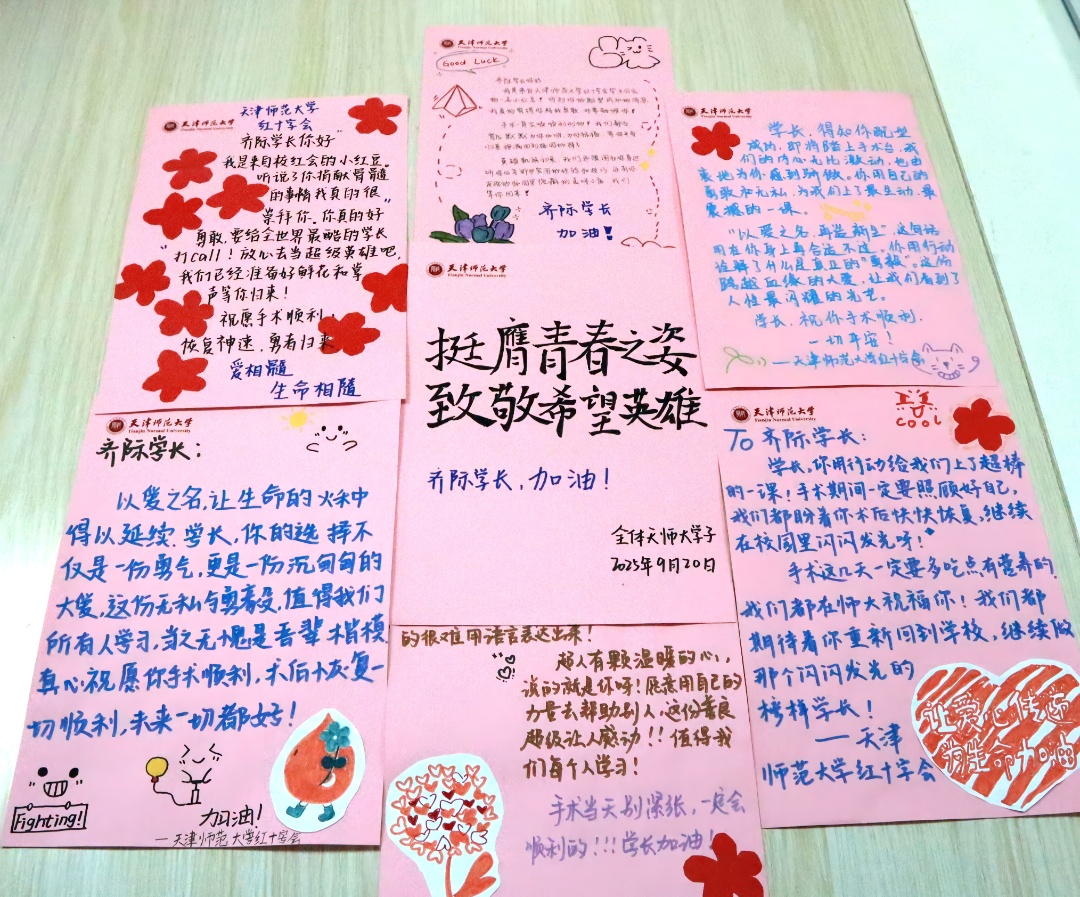 天津师范大学
Tianjin Normal University
天津师范大学
红十字会
齐际学长你好
我是来自校红会的小红豆.
听说了你捐献骨髓
的事情我真的很
崇拜你.你真的好
勇敢.要给全世界最酷的学长
打call！放心去当超级英雄吧,
我们已经准备好鲜花和掌
声等你归来！
祝愿手术顺利,
恢复神速.勇者归来
爱相髓
生命相随
天津师范大学
Tianjin Normal University
Good Luck
齐际学长
加油！
天津师范大学
Tianjin Normal University
学长,得知你配型
成功,即将踏上手术台,我
们的内心无比激动,也由
衷地为你感到骄傲。你用自己的
勇敢和无私,为我们上了最生动、最
震撼的一课。
"以爱之名,再造新生",这句话
用在你身上再合适不过。你用行动
诠释了什么是真正的"勇敢"。这份
跨越血缘的大爱,让我们看到了
人性最闪耀的光芒。
学长,祝你手术顺利,
一切平安！
—天津师范大学红十字会
天津师范大学
Tianjin Normal University
挺膺青春之姿
致敬希望英雄
齐际学长,加油！
全体天师大学子
2025年9月20日
天津师范大学
Tianjin Normal University
齐际学长：
以爱之名,让生命的火种
得以延续.学长,你的选择不
仅是一份勇气,更是一份沉甸甸的
大爱,这份无私与勇毅,值得我们
所有人学习,当之无愧是吾辈楷模.
真心祝愿你手术顺利,术后恢复一
切顺利,未来一切都好！
Fighting!
加油！
—天津师范大学红十字会
的很难用语言表达出来！
超人有颗温暖的心,
说的就是你呀！愿意用自己的
力量去帮助别人,这份善良
超级让人感动！！值得我
们每个人学习！
手术当天别紧张,一定会
顺利的！！！学长加油！
天津师范大学
Tianjin Normal University
COOL
To 齐际学长：
学长,你用行动给我们上了超棒
的一课！手术期间一定要照顾好自己,
我们都盼着你术后快快恢复,继续
在校园里闪闪发光呀！
手术这几天一定要多吃点有营养的,
我们都在师大祝福你！我们都
期待着你重新回到学校,继续做
那个闪闪发光的
榜样学长！
—天津
师范大学红十字会
让爱心传递
为生命加油